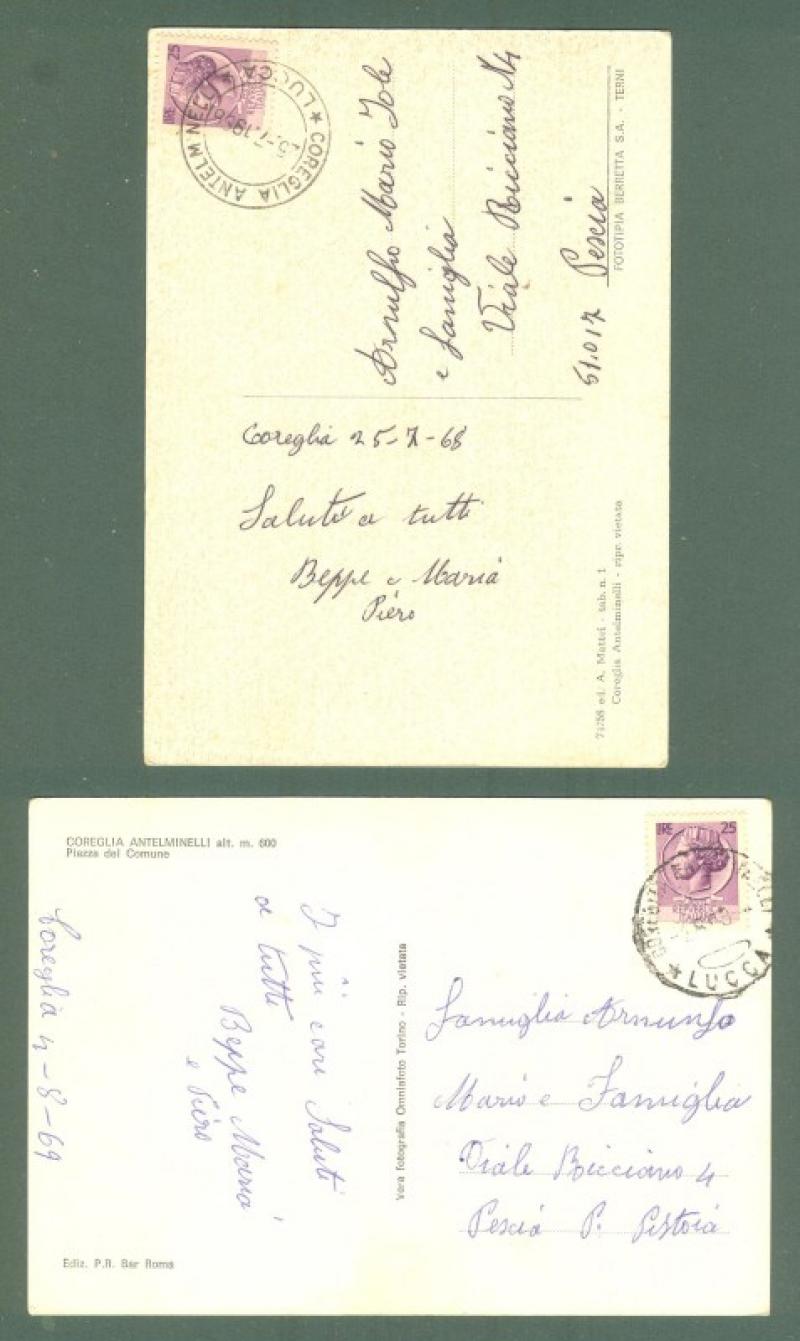 LIRE 25
REPUBBLICA ITALIANA
COREGLIA ANTELMINELLI * LUCCA *
25-7-1968
Arnulfo Mario Iole
e famiglia
Viale Ricciano N4
51.017 Pescia
FOTOTIPIA BERRETTA S.A. - TERNI
Coreglia 25-7-68
Saluti a tutti
Beppe e Maria
Piero
74758 ed. A. Mattei - tab. n. 1
Coreglia Antelminelli - ripr. vietata
COREGLIA ANTELMINELLI alt. m. 600
Piazza del Comune
Coreglia 4-8-69
I più cari Saluti
a tutti
Beppe Maria
e Piero
Ediz. P.R. Bar Roma
Vera fotografia Omniafoto Torino - Rip. vietata
LIRE 25
* LUCCA *
Famiglia Arnunfo
Mario e Famiglia
Viale Ricciano 4
Pescia P. Pistoia